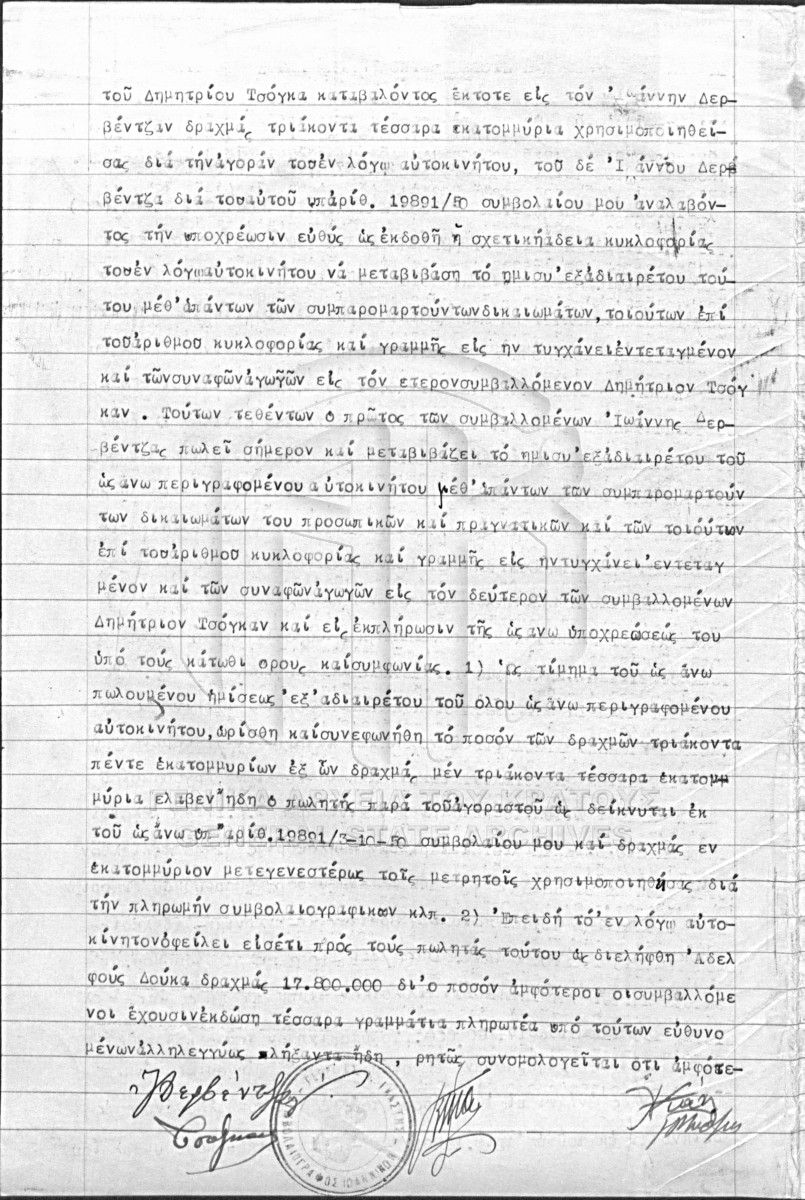 τοῦ Δημητρίου Τσόγκα καταβαλόντος ἔκτοτε εἰς τόν Ἰωάννην Δερ-
βέντζαν δραχμάς τριάκοντα τέσσαρα ἑκατομμύρια χρησιμοποιηθεί-
σας διά τήναγοράν τουἐν λόγω αὐτοκινήτου, τοῦ δέ Ἰ άννου Δερ
βέντζα διά τουαὐτοῦ υπἀρίθ. 19891/50 συμβολαίου μου ἀναλαβόν-
τος τήν υποχρέωσιν εὐθύς ὡς ἐκδοθῆ ἡ σχετικήάδεια κυκλοφορίας
τουἐν λόγωαὐτοκινήτου νά μεταβιβάση τό ημισυ ἐξἀδιαιρέτου τού
του μέθ' ἁπάντων τῶν συμπαρομαρτούντωνδικαιωμάτων,τοιούτων ἐπί
τοῦἀριθμου κυκλοφορίας καί γραμμῆς εἰς ην τυγχάνειἐντεταγμένον
καί τῶνσυναφῶνἀγωγῶν εἰς τόν ετερονσυμβαλλόμενον Δημήτριον Τσόγ
καν . Τούτων τεθέντων ο πρῶτος τῶν συμβαλλομένων Ἰωάννης Δερ-
βέντζας πωλεῖ σήμερον καί μεταβιβάζει τό ημισυ ἐξἀδιαιρέτου τοῦ
ὡς ανω περιγραφομένου αὐτοκινήτου μέθ' ἁπάντων τῶν συμπαρομαρτούν
των δικαιωμάτων του προσωπικῶν καί πραγματικῶν καί τῶν τοιούτων
ἐπί τουἀριθμου κυκλοφορίας καί γραμμῆς εἰς ηντυγχίνει ἐντεταγ
μένον καί τῶν συναφῶνἀγωγῶν εἰς τόν δεύτερον τῶν συμβαλλομένων
Δημήτριον Τσόγκαν καί εἰς ἐκπλήρωσιν τῆς ὡς ανω ὑποχρεώσεώς του
ὑπό τούς κάτωθι ορους καίσυμφωνίας. 1) Ὡς τίμημα τοῦ ὡς ἄνω
πωλουμένου ἡμίσεως ἐξ'αδιαιρέτου τοῦ ὅλου ὡς ανω περιγραφομένου
αὐτοκινήτου,ωρίσθη καίσυνεφωνήθη τό ποσόν τῶν δραχμῶν τριάκοντα
πέντε ἑκατομμυρίων ἐξ ὧν δραχμάς μέν τριάκοντα τέσσαρα ἑκατομ-
μύρια ελαβεν ἤδη ο πωλητής παρά τοῦἀγοραστοῦ ὡς δείκνυται ἐκ
τοῦ ὡς ἄνω υπ' ἀρίθ.19891/3-10-50 συμβολαίου μου καί δραχμάς εν
ἑκατομμύριον μετεγενεστέρως τοῖς μετρητοῖς χρησιμοποιηθήσας διά
τήν πληρωμήν συμβολαιογραφικων κλπ. 2) Ἐπειδή τό ἐν λόγω αὐτο-
κίνητονὀφείλει εἰσέτι πρός τούς πωλητάς τούτου ὡς διελήφθη Ἀδελ
φούς Δούκα δραχμάς 17.800.000 δι'ο ποσόν ἀμφότεροι οισυμβαλλόμε
νοι ἔχουσινἐκδώση τέσσαρα γραμμάτια πληρωτέα υπό τούτων εὐθυνο
μένωνἀλληλεγγύως λήξαντα ἤδη , ρητῶς συνομολογεῖται οτι ἀμφότε-
ΓΕΝΙΚΑ ΑΡΧΕΙΑ ΤΟΥ ΚΡΑΤΟΥΣ
GENERAL STATE ARCHIVES